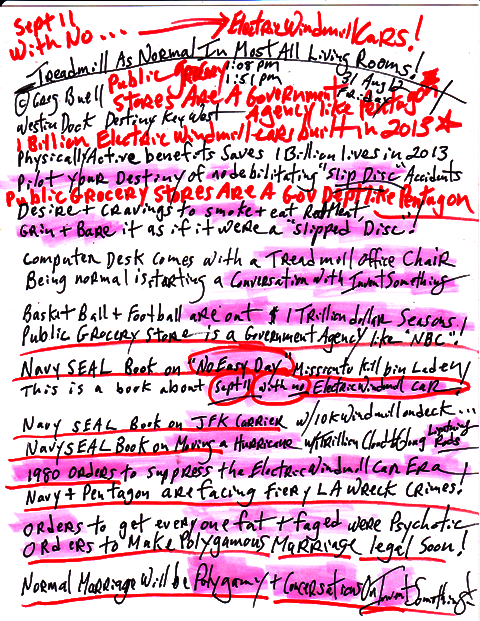 Sept 11
With No... → Electric Windmill Cars!
Treadmill As Normal In Most All Living Rooms!
Public Grocery 1:08 pm 31 Aug 12
© Greg Buell 1:51 pm Friday
Stores Are A Government
Westin Dock Destiny Key West Agency like Pentagon
1 Billion Electric Windmill Cars Built in 2013
Physically Active benefits Saves 1 Billion lives in 2013
Pilot your Destiny of no debilitating "Slip Disc" Accidents
Public Grocery Stores Are A Gov Dept like Pentagon
Desire + Cravings to smoke + eat Red Meat,
Grin + Bare it as if it were a "slipped Disc!
Computer Desk comes with a Treadmill office Chair
Being normal is starting a Conversation with Invent Something
Basket Ball + Football are out $ 1 Trillion dollar Seasons!
Public Grocery Store is a Government Agency like "NBC"!
Navy SEAL Book on "No Easy Day" Miss to kill bin Laden
This is a book about Sept 11 with no Electric Windmill Car!
Navy SEAL Book on JFK Carrier w/10K windmill ondeck...
Navy SEAL Book on Moving a Hurricane w/Trillion Cloud to Lightning Rods
1980 orders to suppress the Electric Windmill Car Era!
Navy + Pentagon are facing fiery LA Wreck Crimes!
Orders to get everyone fat + faged were Psychotic
Orders to Make Polygamous Marriage legal Soon!
Normal Marriage will be Polygamy + Conversations On Invent Something!